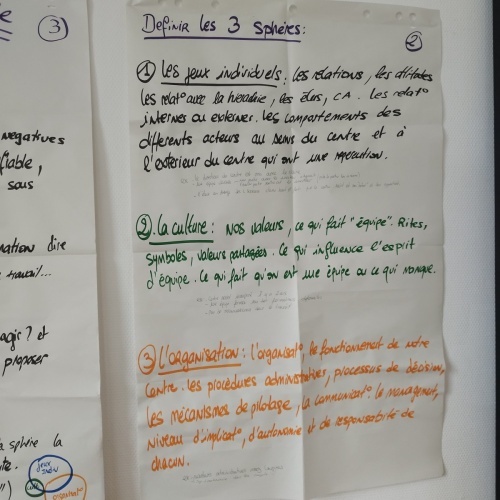 3
negatives
fiable,
sous
mation dire
travail...
agir? et
proposer
sphère la
jeux
indiv
Définir les 3 sphères:
2
1 Les jeux individuels: les relations, les attitudes
les relat° avec la hiérarchie, les élus, CA. les relat°
internes ou externes. les comportements des
différents acteurs au sein du centre et à
l'extérieur du centre qui ont une répercution.
2 La culture: nos valeurs, ce qui fait "équipe". Rites,
symboles, valeurs partagées. Ce qui influence l'esprit
d'équipe. Ce qui fait qu'on est une équipe ou ce qui manque.
3 L'organisation: l'organisat°, le fonctionnement de notre
centre. les procédures administratives, processus de décision,
les mécanismes de pilotage, la communicat° le management,
niveau d'implicat°, d'autonomie et de responsabilité de
chacun.